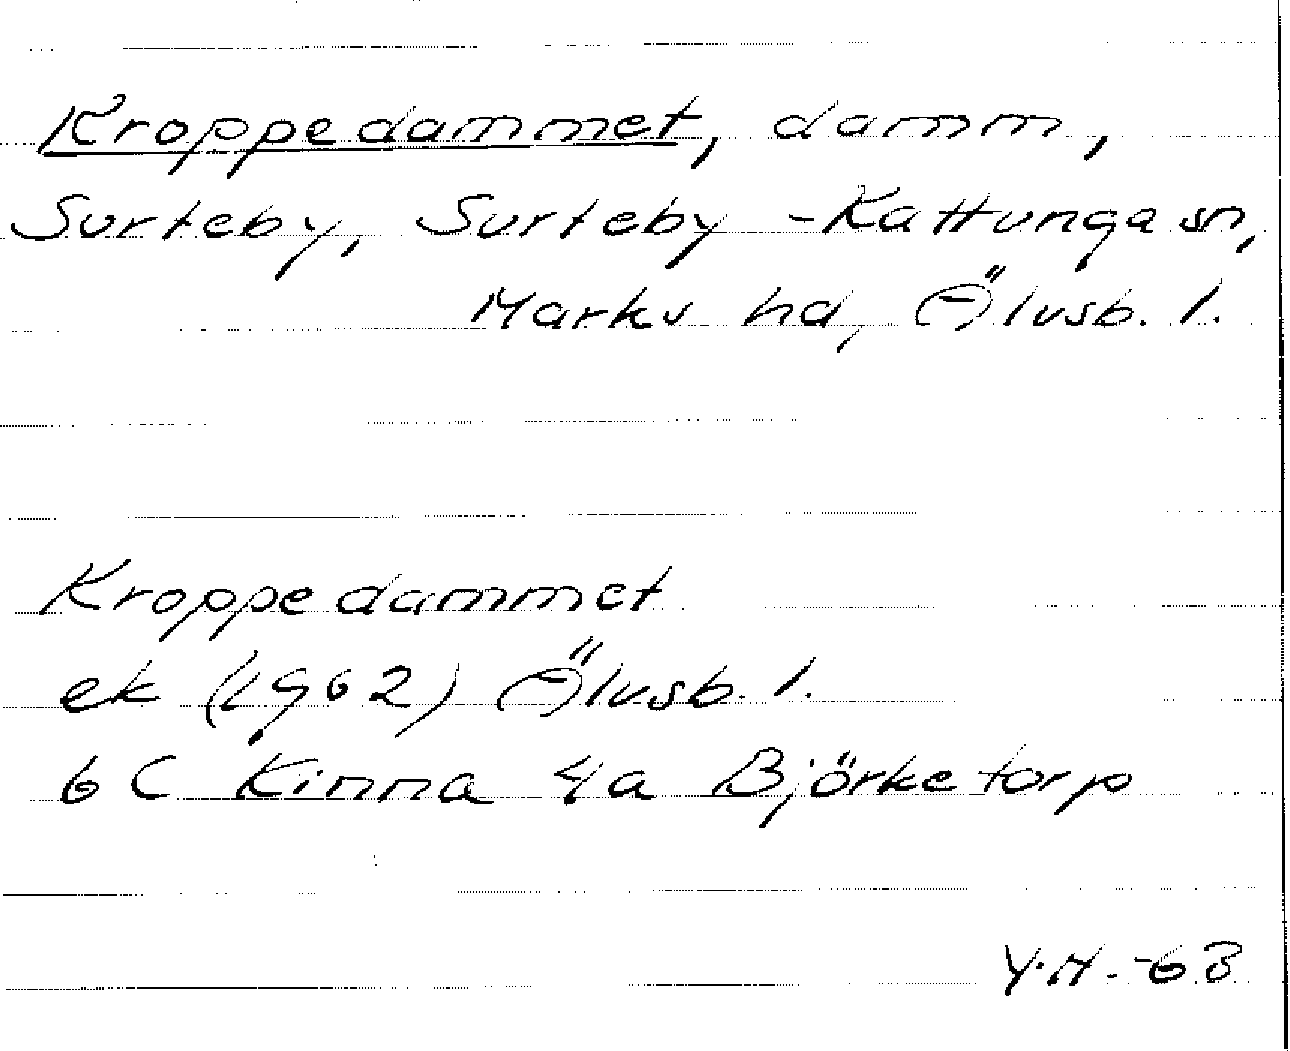 Kroppedammet, damm,
Surteby, Surteby-Kattunga sn,
Marks hd, Älvsb. l.
Kroppedammet
ek (1962) Älvsb. l.
6 C Kinna 4a Björketorp
Y.H. -63